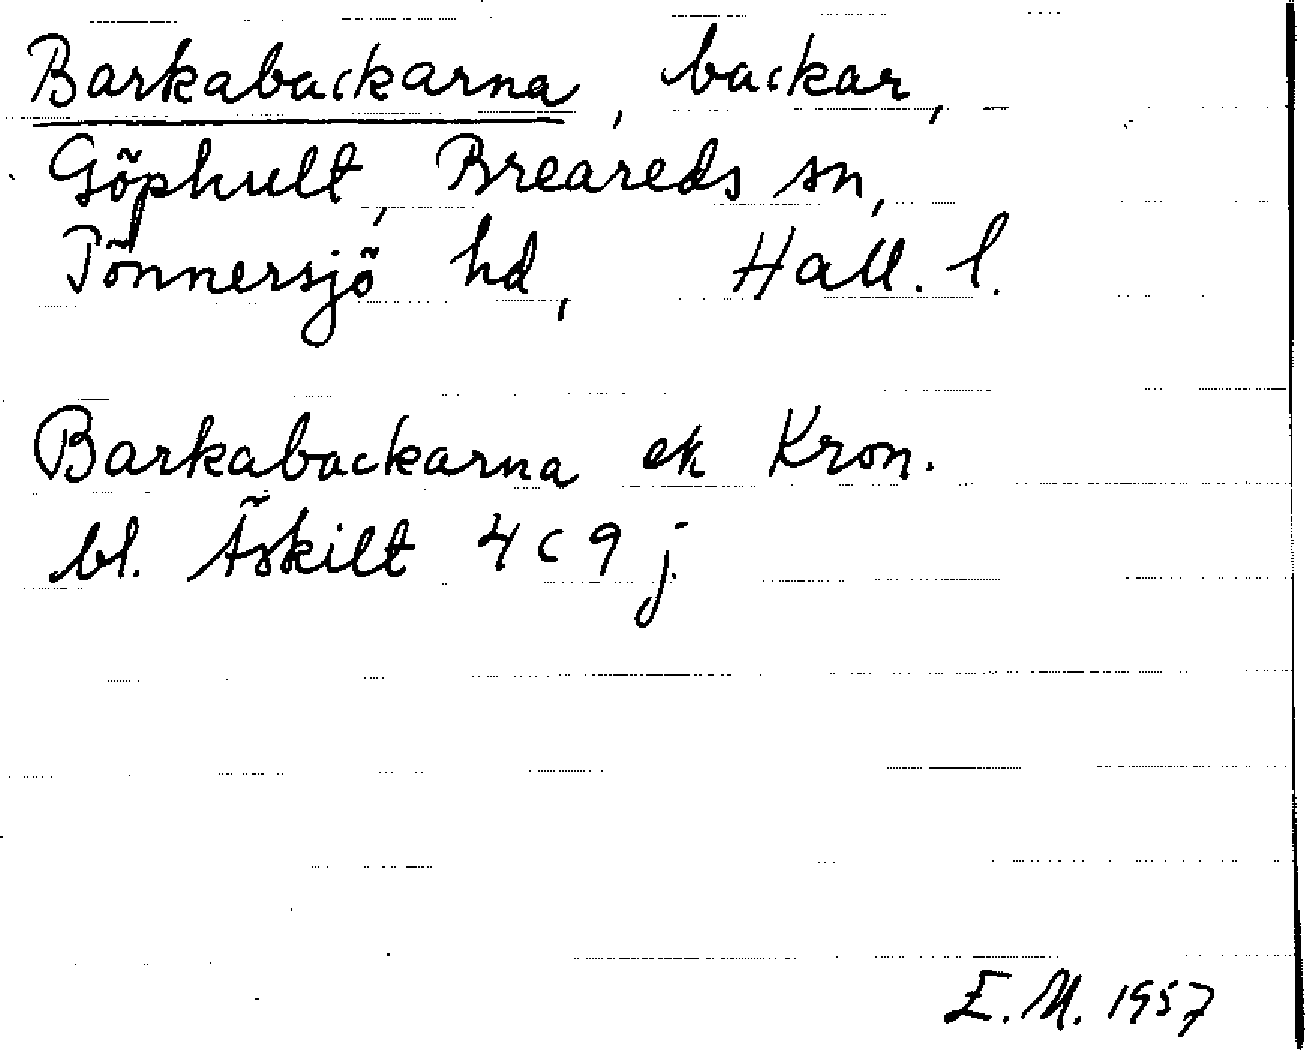 Barkabackarna, backar,
Göphult, Breareds sn,
Tönnersjö hd, Hall. l.
Barkabackarna ek Kron.
bl. Äskilt 4 c 9 j.
E. M. 1957